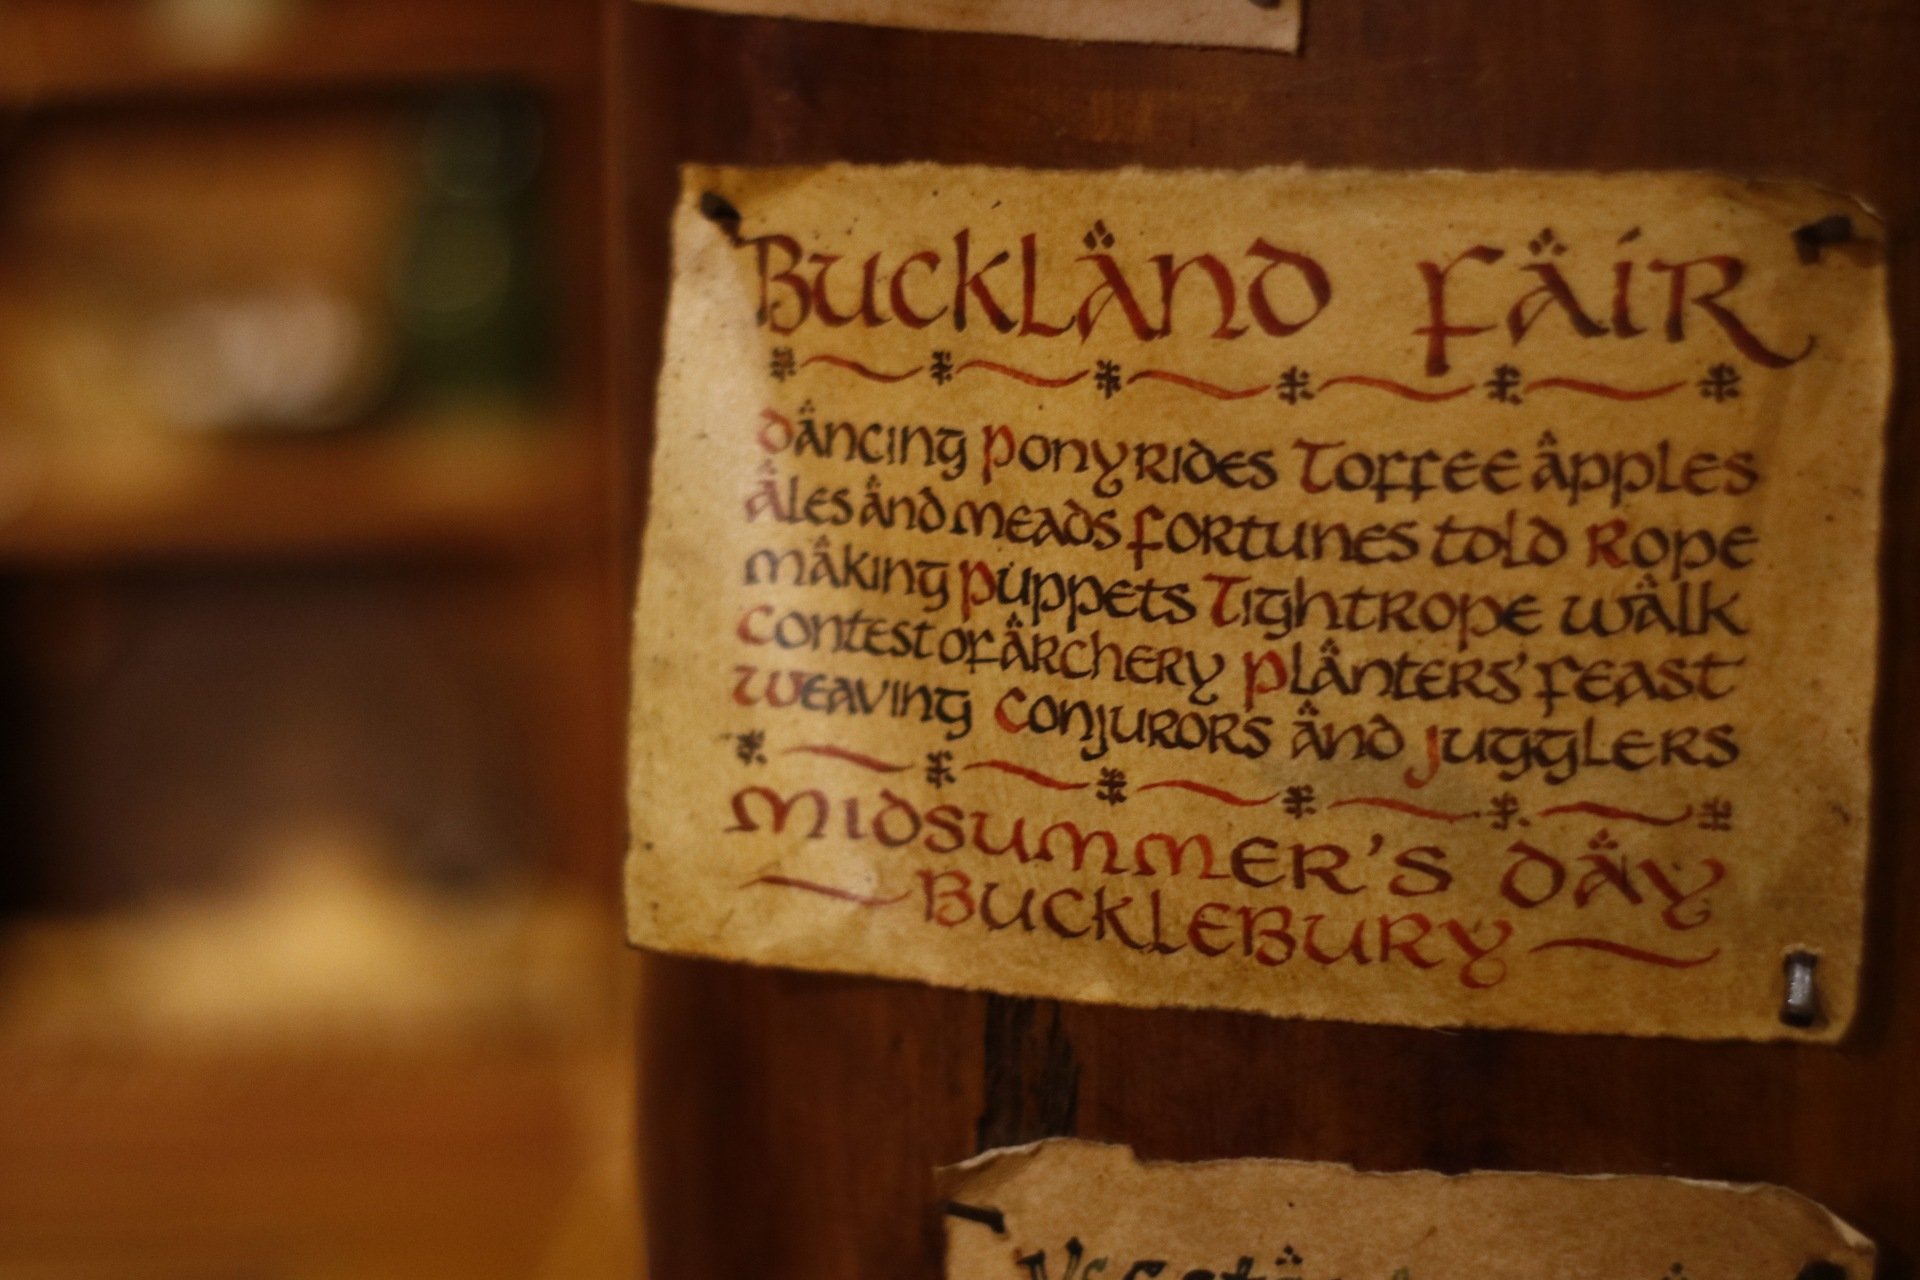 Buckland Fair
Dancing Pony rides Toffee apples
Ales and meads Fortunes told Rope
making Puppets Tightrope walk
Contest of archery Planters' feast
Weaving Conjurors and Jugglers
Midsummer's Day
Bucklebury